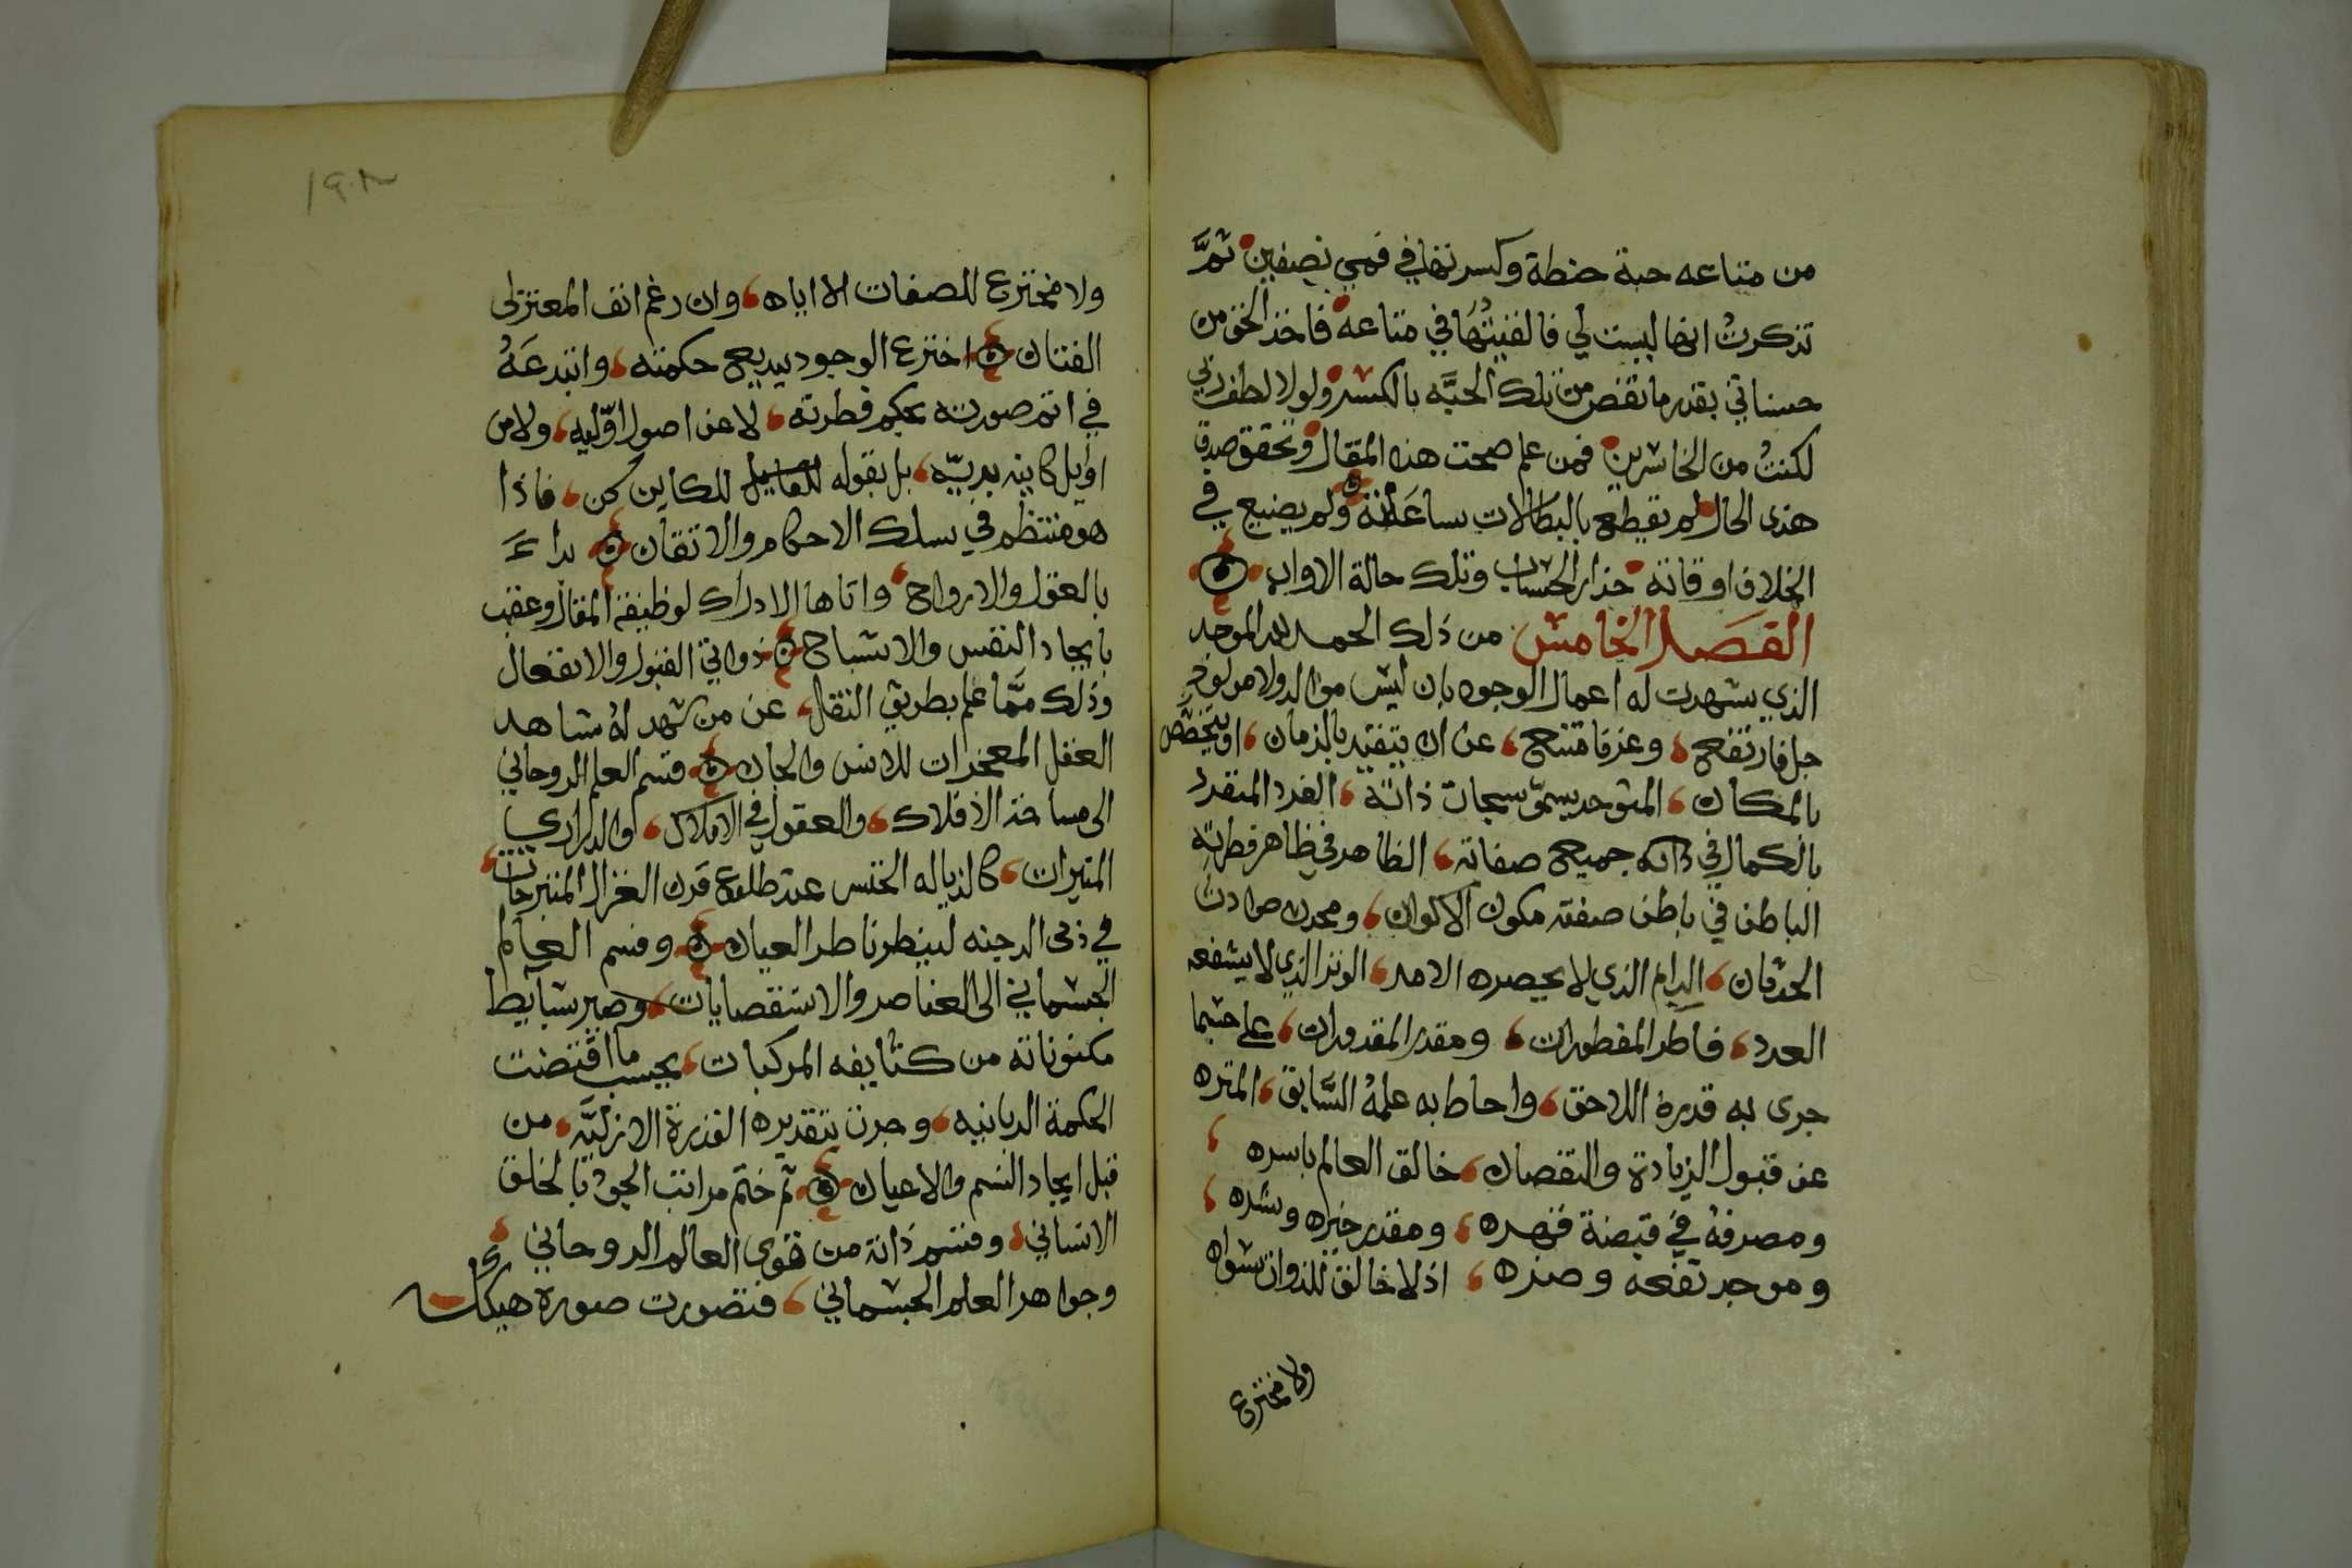 من متاعه حبة حنطة وكسرتها في فمي نصفين ثمَّ
تذكرتُ انها ليست لي فالفيتُهَا في متاعه فاخذ الخق من
حسناتي بقدر ما نقص من تلك الحبَّه بالكسر ولولا لطف ربي
لكنتُ من الخاسرين فمن علم صحت هذه المقال وتحقق صدق
هذى الحال لم يقطع بالبطالات ساعَاته ولم يضيع في
الخلاف اوقاته حذار الحساب وتلك حالة الاواب
الفصل الخامس من ذلك الحمد لله الموجد
الذي شهدت له اعمال الوجوه بان ليس موالد ولا مولود
جل فارتفع وعز فامتنع عن ان يتقيد بالزمان او يتخصص
بالمكان المتوحد بسموّ سبحات ذاته الفرد المتفرد
بالكمال في ذاته جميع صفاته الظاهر في ظاهر فطرته
الباطن في باطن صفته مكون الاكوان ومحدث حوادث
الحدثان الدام الذي لا يحصره الامد الوتر الذي لا يشفعه
العدد فاطر المفطورات ومقدر المقدورات على حسبما
جرى به قدره اللاحق واحاط به علمهُ السَّابق المنزه
عن قبول الزيادة والنقصان خالق العالم باسره
ومصرفهُ في قبضة قهره ومقدر خيره وشره
وموجد نفعه وضره اذ لا خالق للذوات سواه
ولا مخترع
ولا مخترع للصفات الا اياه وان رغم انف المعتزلى
الفتان اخترع الوجود ببديع حكمته وابتدعَهُ
في اتم صورته بحكم فطرته لا عن اصول اوّليه ولا من
اوايل كاينه بديّه بل بقوله للكاين كن فاذا
هو منتظم في سلك الاحكام والاتقان بداءَ
بالعقول والارواح واتاها الادراك لوظيفة المقال وعقب
بايجاد النفس والاشباح ذواتي القبول والانفعال
وذلك ممَّا علم بطريق النقل عن من شهد لهُ شاهد
العقل المعجزات للانس والجان قسم العلم الروحاني
الى مساحة الافلاك والعقول في الاملاك والدراري
النيرات كالذباله الخنس عند طلوع قرن الغزال المتبرجات
في دجى الدجنه لينظر ناطر العيان وقسم العالم
الجسماني الى العناصر والاستقصايات وصير بسايط
مكنوناته من كثايفه المركبات بحسب ما اقتضت
الحكمة الربانيه وجرت بتقديره القدرة الازليَّه من
قبل ايجاد النسم والاعيان ثم ختم مراتب الجود بالخلق
الانساني وقسم ذاته من قوى العالم الروحاني
وجواهر العلم الجسماني فتصورت صورة هيكله